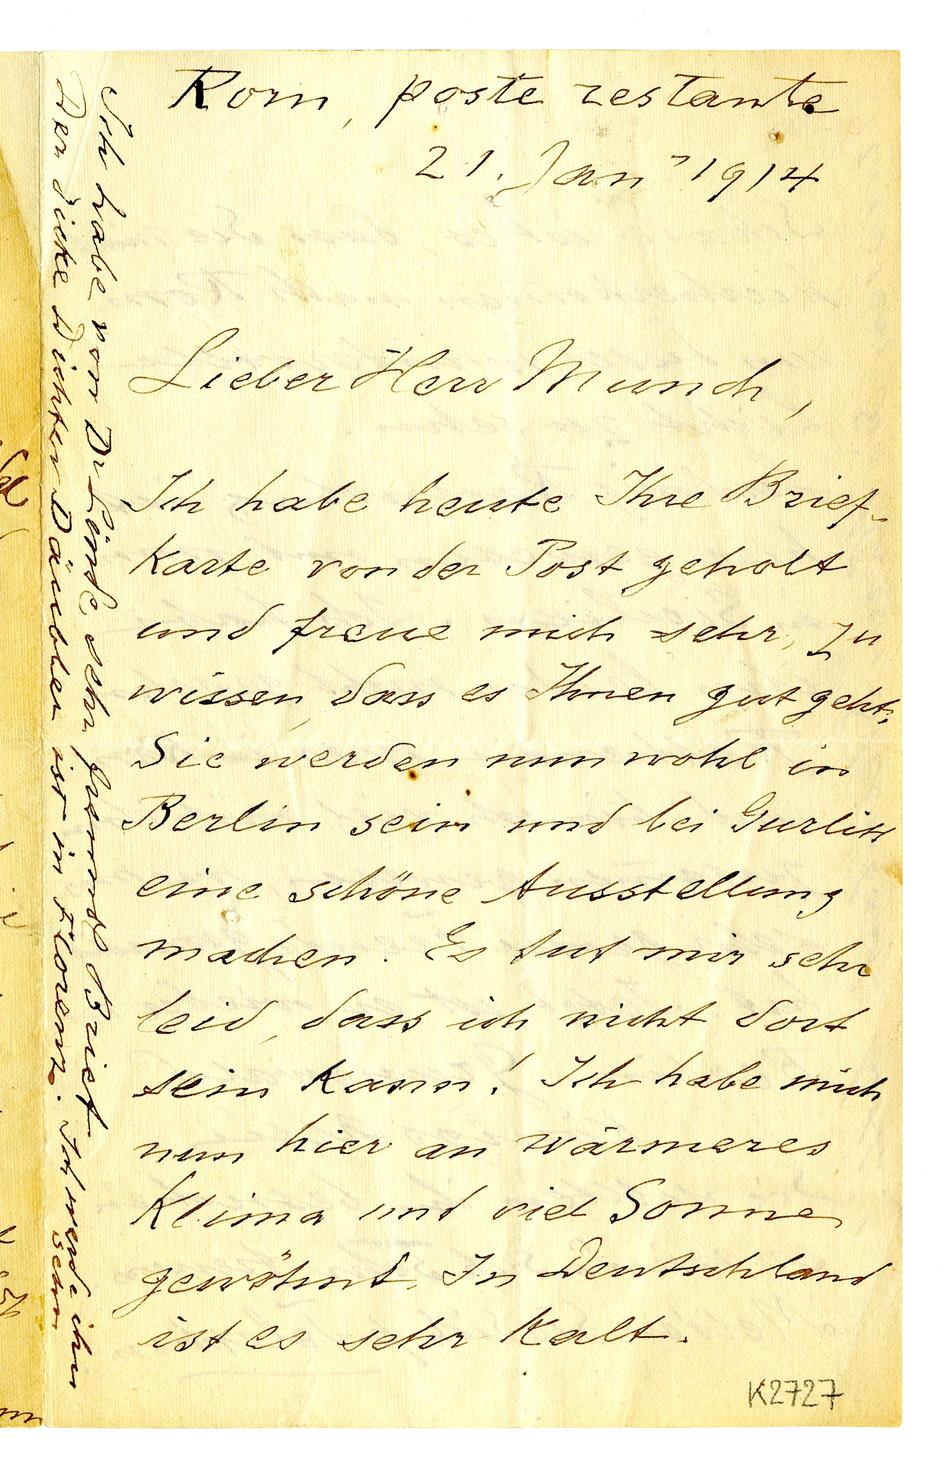 Rom, poste restante
21. Jan 1914
Lieber Herr Munch,
Ich habe heute Ihre Brief-
karte von der Post geholt
und freue mich sehr, zu
wissen, dass es Ihnen gut geht.
Sie werden nun wohl in
Berlin sein und bei Gurlitt
eine schöne Ausstellung
machen. Es tut mir sehr
leid, dass ich nicht dort
sein kann! Ich habe mich
nun hier an wärmeres
Klima und viel Sonne
gewöhnt. In Deutschland
ist es sehr kalt.
Ich habe von Dr Linde sehr Brief
Der dicke Dichter Däubler ist in Florenz. Ich werde ihn
sehen
K2727